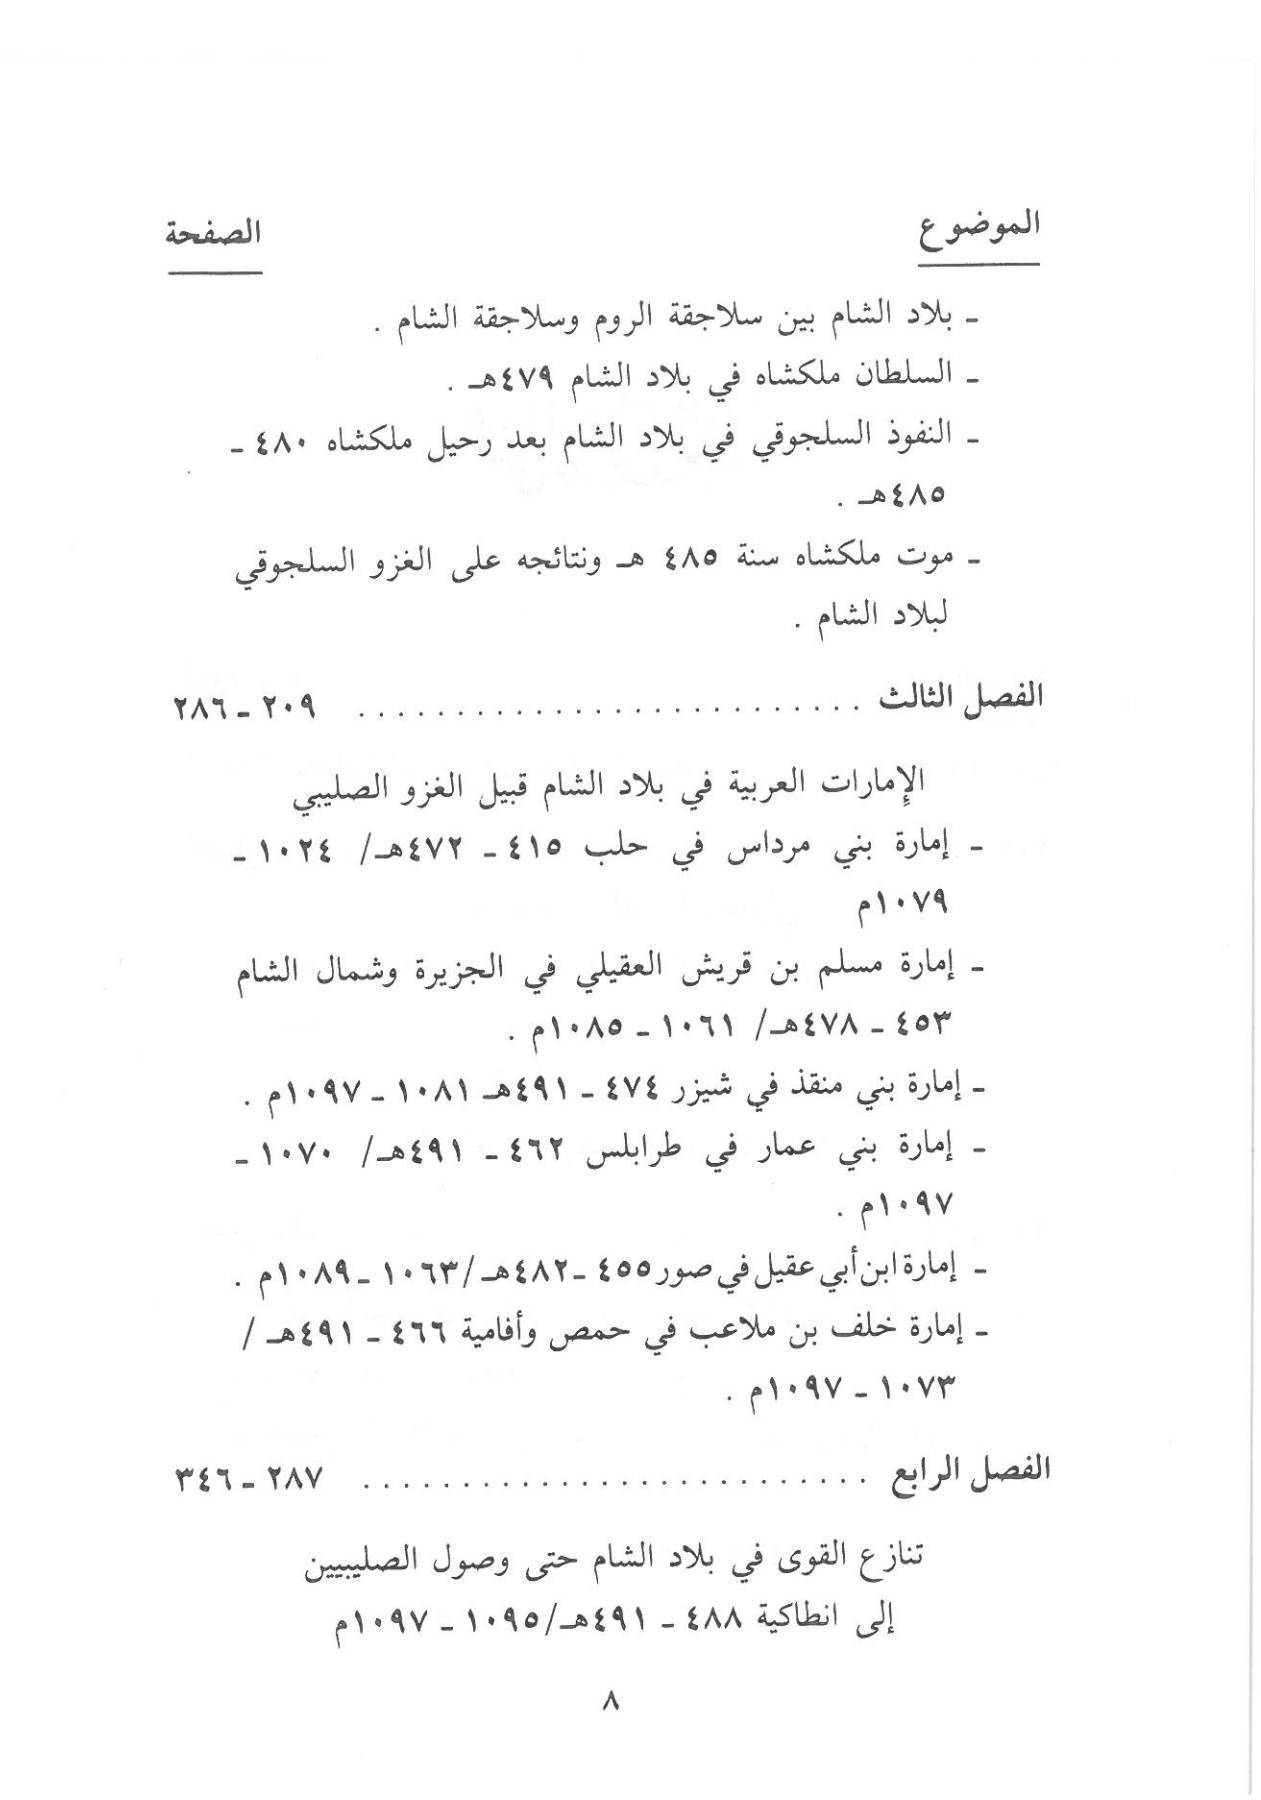 الموضوع الصفحة
ـ بلاد الشام بين سلاجقة الروم وسلاجقة الشام .
ـ السلطان ملكشاه في بلاد الشام ٤٧٩هـ .
ـ النفوذ السلجوقي في بلاد الشام بعد رحيل ملكشاه ٤٨٠ ـ
٤٨٥هـ .
ـ موت ملكشاه سنة ٤٨٥ هـ ونتائجه على الغزو السلجوقي
لبلاد الشام .
الفصل الثالث .......................... ٢٠٩ ـ ٢٨٦
الإمارات العربية في بلاد الشام قبيل الغزو الصليبي
ـ إمارة بني مرداس في حلب ٤١٥ ـ ٤٧٢هـ/ ١٠٢٤ ـ
١٠٧٩م
ـ إمارة مسلم بن قريش العقيلي في الجزيرة وشمال الشام
٤٥٣ ـ ٤٧٨هـ/ ١٠٦١ ـ ١٠٨٥م .
ـ إمارة بني منقذ في شيزر ٤٧٤ ـ ٤٩١هـ ١٠٨١ ـ ١٠٩٧م .
ـ إمارة بني عمار في طرابلس ٤٦٢ ـ ٤٩١هـ/ ١٠٧٠ ـ
١٠٩٧م .
ـ إمارة ابن أبي عقيل في صور ٤٥٥ ـ ٤٨٢هـ/١٠٦٣ ـ ١٠٨٩م .
ـ إمارة خلف بن ملاعب في حمص وأفامية ٤٦٦ ـ ٤٩١هـ /
١٠٧٣ ـ ١٠٩٧م .
الفصل الرابع .......................... ٢٨٧ ـ ٣٤٦
تنازع القوى في بلاد الشام حتى وصول الصليبيين
إلى انطاكية ٤٨٨ ـ ٤٩١هـ/١٠٩٥ ـ ١٠٩٧م
٨